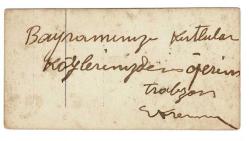 Bayramınızı kutlular
gözlerinizden öperim
trabzon
Ekrem